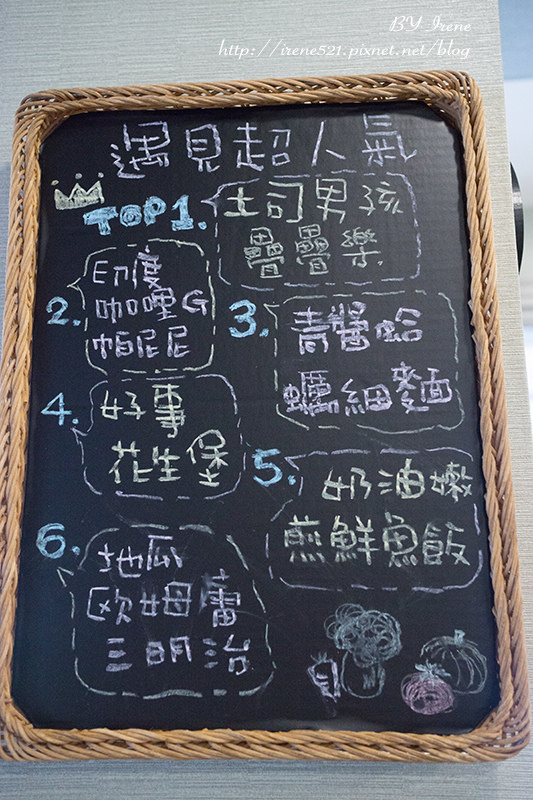 BY Irene
http://irene521.pixnet.net/blog
遇見超人氣
TOP1.
土司男孩
疊疊樂
2.
印度
咖哩G
帕尼尼
3.
青醬蛤
蠣細麵
4.
好事
花生堡
5.
奶油嫩
煎鮮魚飯
6.
地瓜
歐姆蕾
三明治